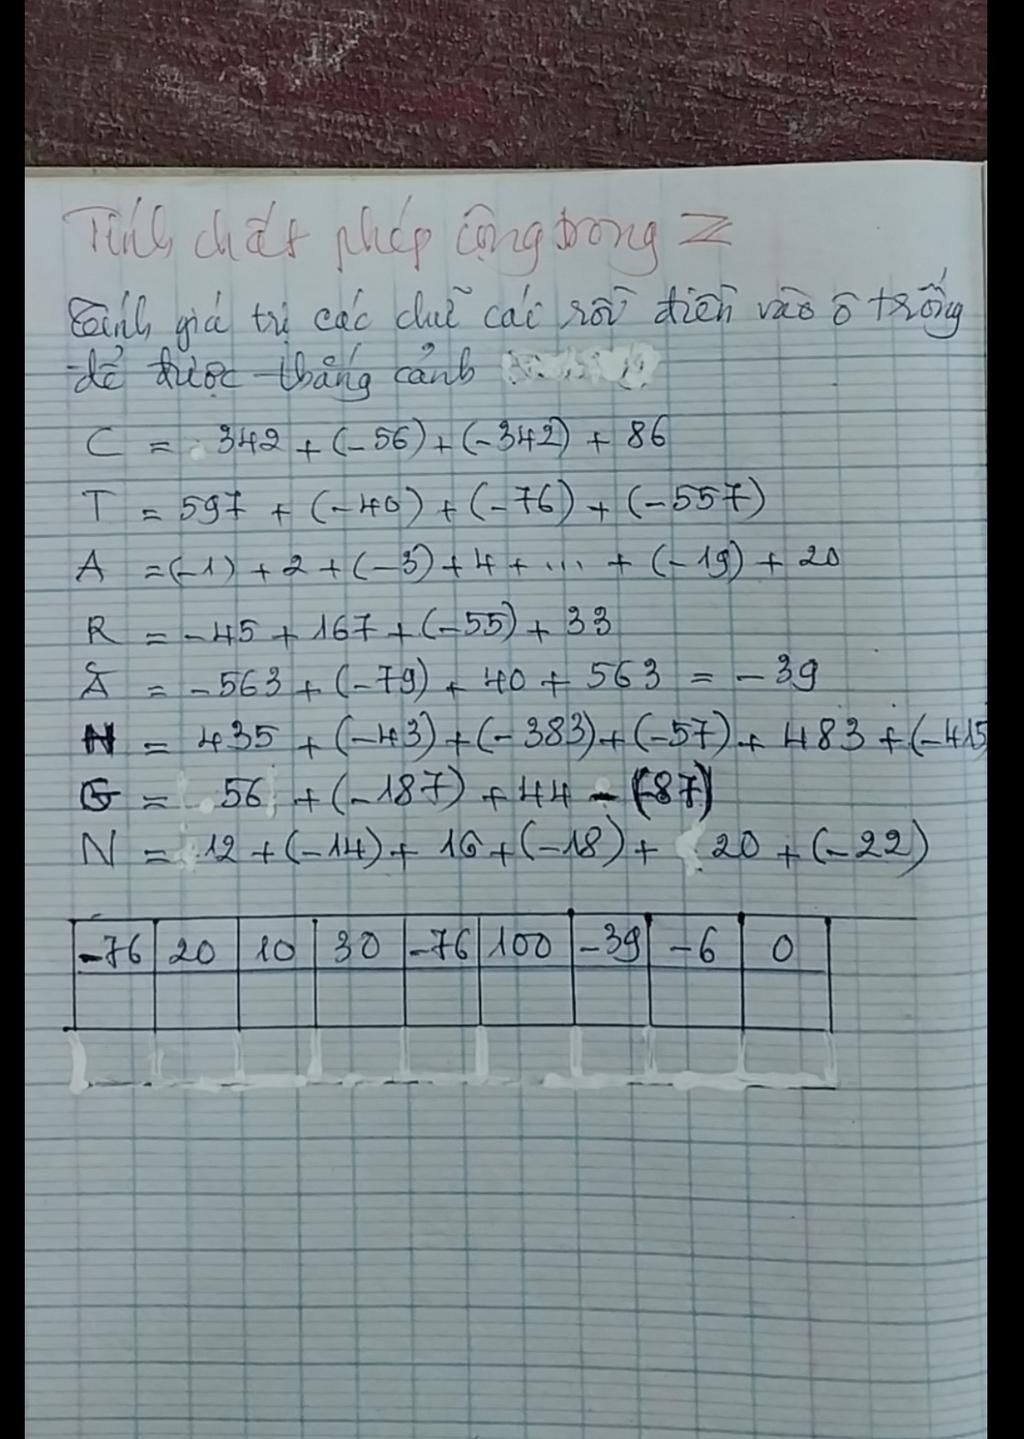 Tính chất phép cộng trong Z
Tính giá trị các chữ cái rồi điền vào ô trống
để được thắng cảnh
C = 342 + (-56) + (-342) + 86
T = 597 + (-40) + (-76) + (-557)
A = (-1) + 2 + (-3) + 4 + ... + (-19) + 20
R = -45 + 167 + (-55) + 33
= -563 + (-79) + 40 + 563 = -39
H = 435 + (-43) + (-383) + (-57) + 483 + (-415
G = 56 + (-187) + 44 - (-87)
N = 12 + (-14) + 16 + (-18) + 20 + (-22)
-76 20 10 30 -76 100 -39 -6 0